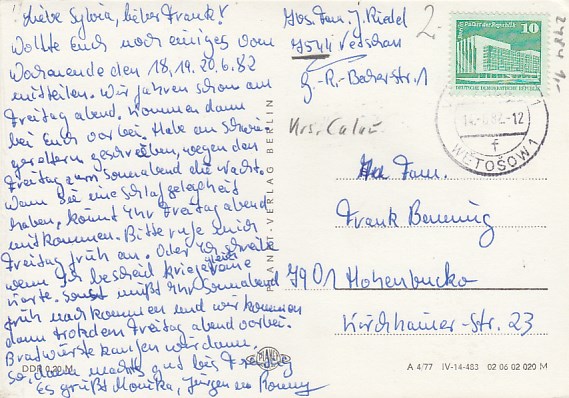 Liebe Sylvia, lieber Frank!
Wollte Euch noch einiges vom
Wochenende den 18., 19. 20. 6. 82
mitteilen. Wir fahren schon am
Freitag abend. Kommen dann
bei Euch vorbei. Habe an Schwie-
gereltern geschrieben, wegen den
Freitag zum Sonnabend die Nacht.
Wenn Sie eine Schlafgelegenheit
haben, könnt Ihr Freitag abend
mitkommen. Bitte rufe mich
Freitag früh an. Oder ich schreibe
wenn ich bescheid kriege gleich eine
Karte. Sonst müßt Ihr Sonnabend
früh nachkommen und wir kommen
dann trotzdem Freitag abend vorbei.
Bratwürste kaufen wir dann.
So, dann machts gut bis Freitag
Es grüßt Monika, Jürgen u. Ronny
DDR 0,20 M
PLANET-VERLAG BERLIN
PLANET
Abs. Fam. J. Riedel
7544 Vetschau
J.-R.-Becher-Str. 1
Krs. Calau
2-
2484 1,-
Berlin, Palast der Republik
10
DEUTSCHE DEMOKRATISCHE REPUBLIK
82-12
f
Fam.
Frank Benning
7901 Hohenbucko
Kirchhainer-Str. 23
A 4/77 IV-14-483 02 06 02 020 M